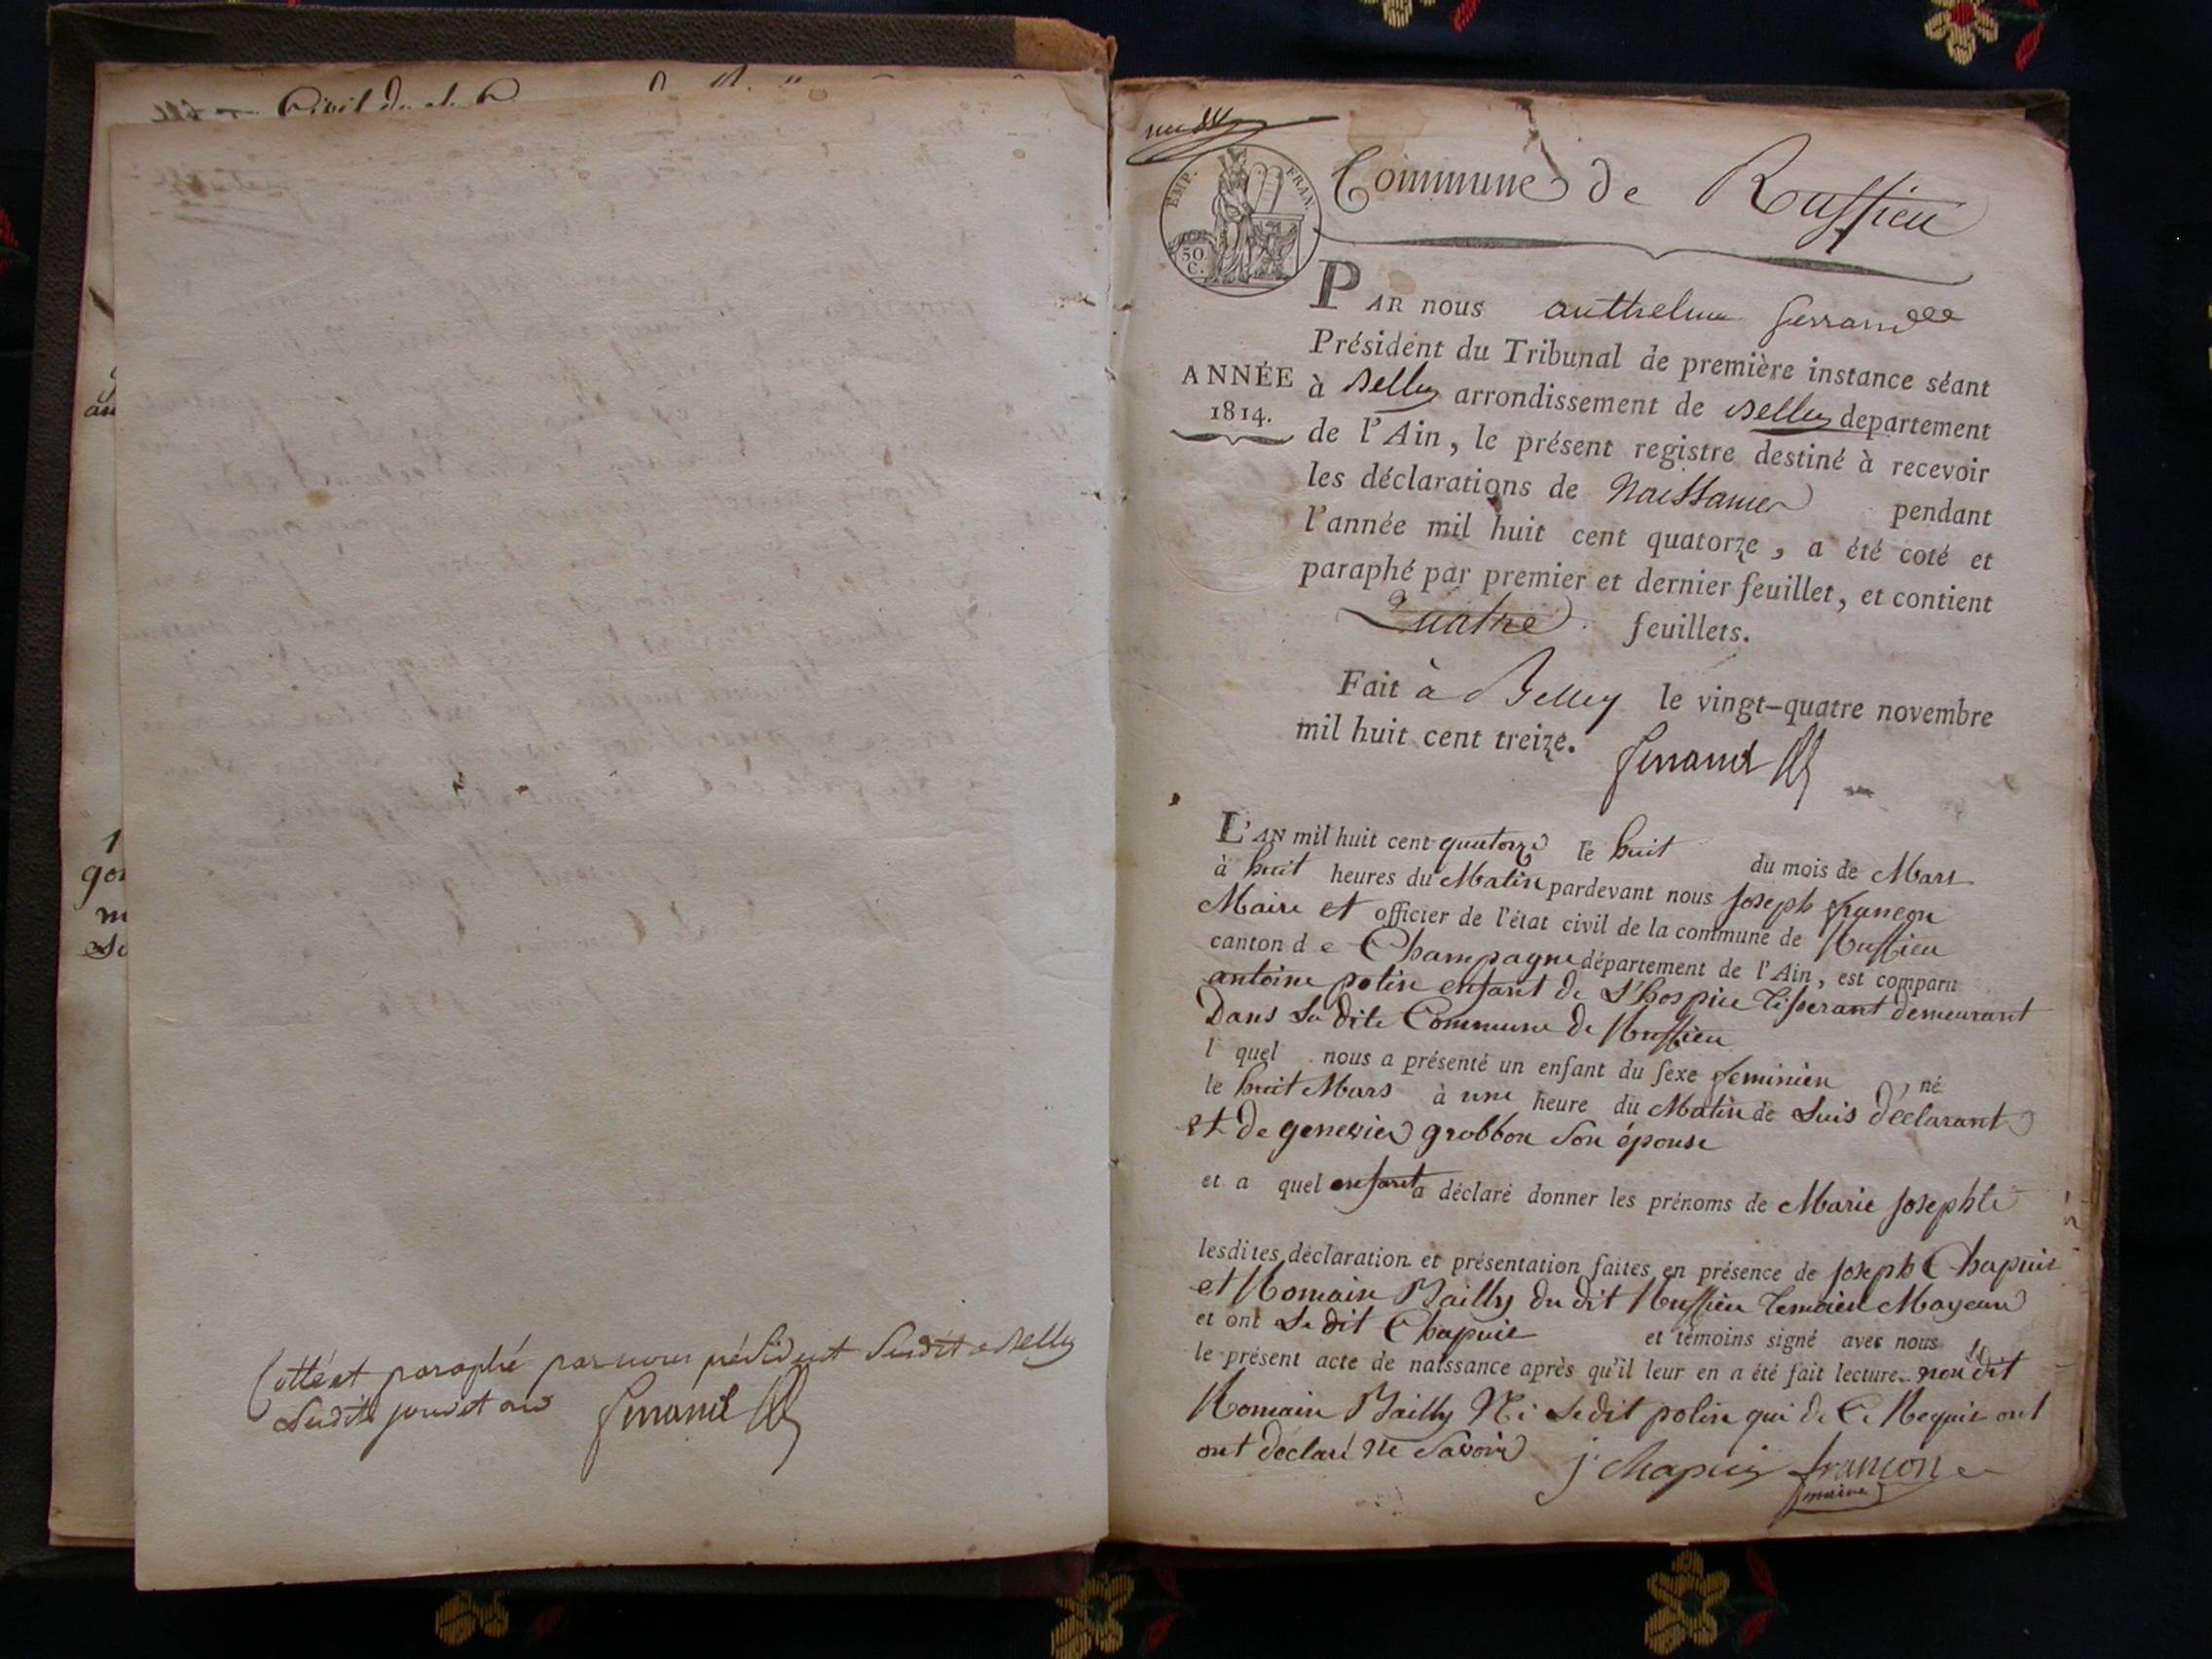 Cotté et paraphé par nous président Susdit a Belley
Susdits jour et an
ferrand
EMP. FRAN.
50
C.
Commune de Ruffieu
PAR nous anthelme ferrand
Président du Tribunal de première instance séant
ANNÉE
1814.
à Belley arrondissement de Belley departement
de l'Ain, le présent registre destiné à recevoir
les déclarations de Naissances pendant
l'année mil huit cent quatorze, a été coté et
paraphé par premier et dernier feuillet, et contient
Quatre feuillets.
Fait à Belley le vingt-quatre novembre
mil huit cent treize.
ferrand
L'AN mil huit cent quatorze le huit du mois de Mars
à huit heures du Matin pardevant nous Joseph françon
Maire et officier de l'état civil de la commune de Ruffieu
canton d e Champagne département de l'Ain, est comparu
antoine polin enfant de L'hospice tisserant demeurant
Dans La dite Commune de Ruffieu
l quel nous a présenté un enfant du sexe feminien, né
le huit Mars à une heure du Matin de Luis déclarant
et de genevieve grobbon Son épouse
et a quel enfant a déclaré donner les prénoms de Marie Josephte
lesdites déclaration et présentation faites en présence de Joseph Chapuis
et Romain Bailly du dit Ruffieu temoien Mageurs
et ont Le dit Chapuis et témoins signé avec nous
le présent acte de naissance après qu'il leur en a été fait lecture. non Le dit
Romain Bailly Ni Ledit polin qui de Ce Requis ont
ont declaré Ne Savoir
j chapuis françon
maire